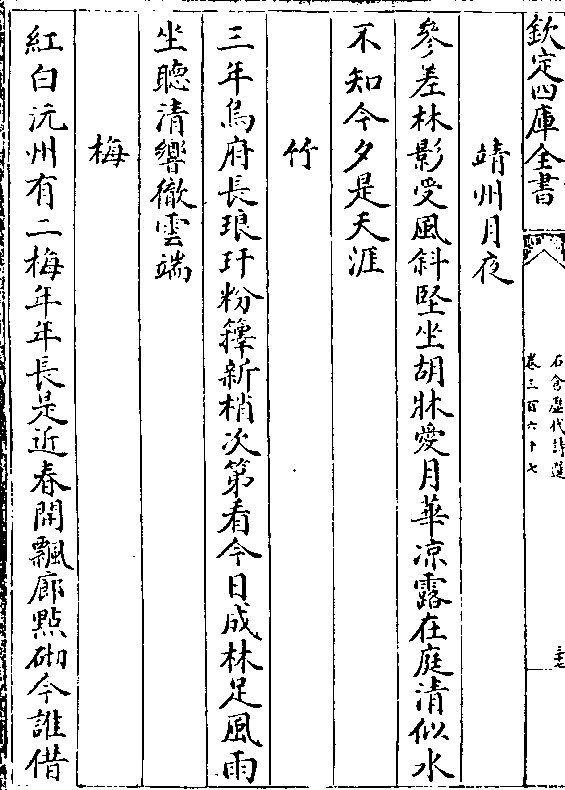 欽定四庫全書
石倉歷代詩選
卷三百六十七
三十七
靖州月夜
參差林影受風斜堅坐胡牀愛月華凉露在庭清似水
不知今夕是天涯
竹
三年烏府長琅玕粉籜新梢次第看今日成林足風雨
坐聽清響徹雲端
梅
紅白沅州有二梅年年長是近春開飄廊點砌今誰借